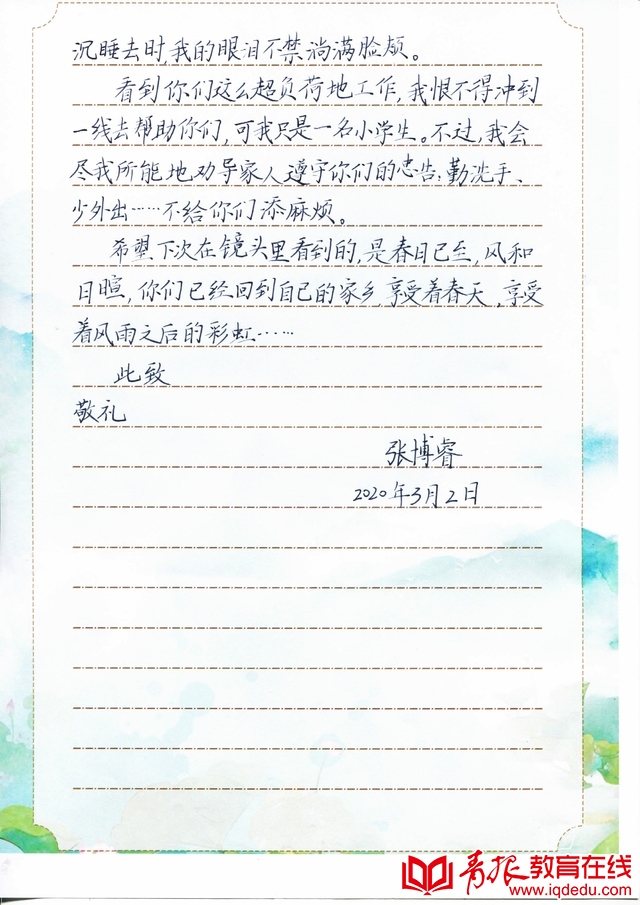 沉睡去时,我的眼泪不禁淌满脸颊。
看到你们这么超负荷地工作,我恨不得冲到
一线去帮助你们,可我只是一名小学生。不过,我会
尽我所能地劝导家人遵守你们的忠告:勤洗手、
少外出……不给你们添麻烦。
希望下次在镜头里看到的,是春日已至,风和
日暄,你们已经回到自己的家乡,享受着春天,享受
着风雨之后的彩虹……
此致
敬礼
张博睿
2020年3月2日
青报教育在线
www.iqdedu.com